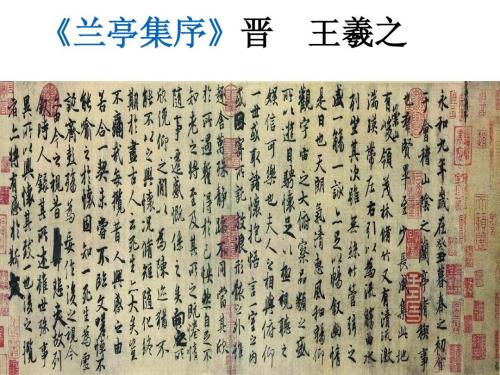 《兰亭集序》晋 王羲之
永和九年歲在癸丑暮春之初會
于會稽山陰之蘭亭脩稧事
也羣賢畢至少長咸集此地
有崇山峻領茂林脩竹又有清流激
湍暎帶左右引以為流觴曲水
列坐其次雖無絲竹管弦之
盛一觴一詠亦足以暢敘幽情
是日也天朗氣清惠風和暢仰
觀宇宙之大俯察品類之盛
所以遊目騁懷足以極視聽之
娛信可樂也夫人之相與俯仰
一世或取諸懷抱悟言一室之內
或因寄所託放浪形骸之外雖
趣舍萬殊靜躁不同當其欣
於所遇暫得於己怏然自足不
知老之將至及其所之既惓情
隨事遷感慨係之矣向之所欣
俛仰之閒以為陳迹猶不
能不以之興懷況脩短隨化終
期於盡古人云死生亦大矣豈
不痛哉每攬昔人興感之由
若合一契未嘗不臨文嗟悼不
能喻之於懷固知一死生為虛
誕齊彭殤為妄作後之視今
亦由今之視昔悲夫故列
敘時人錄其所述雖世殊事
異所以興懷其致一也後之攬
者亦將有感於斯文